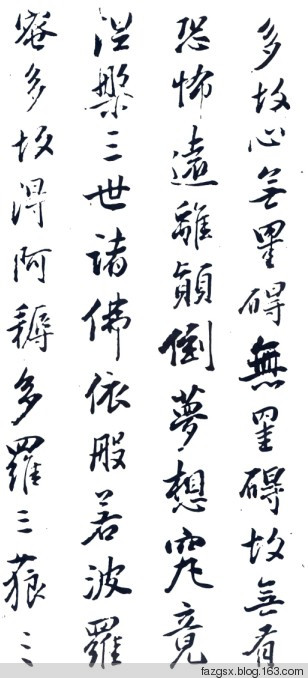 多故心無罣碍無罣碍故無有
恐怖遠離顛倒夢想究竟
涅槃三世諸佛依般若波羅
蜜多故得阿耨多羅三藐三
fazgsx.blog.163.com